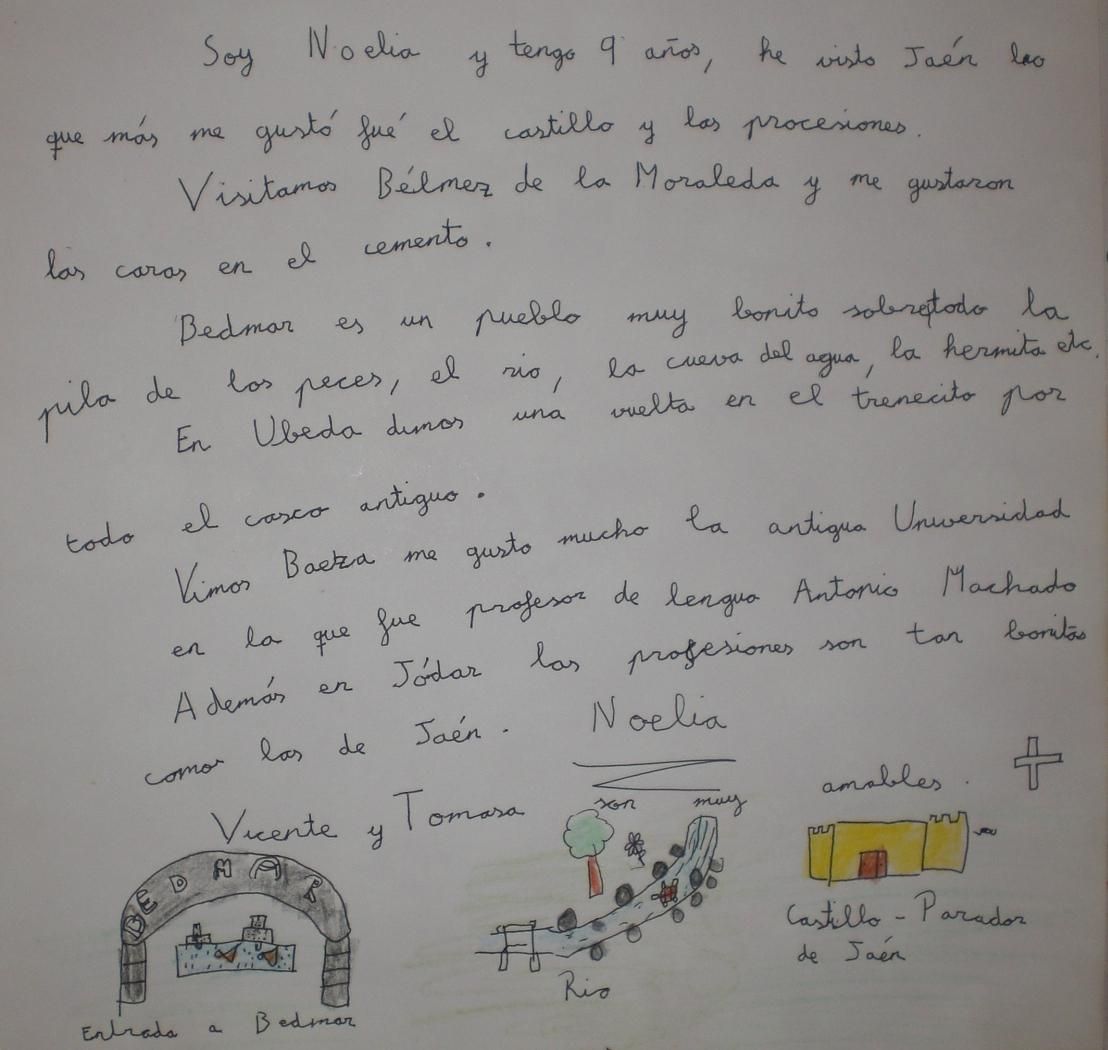 Soy Noelia y tengo 9 años, he visto Jaén lao
que más me gustó fué el castillo y las procesiones.
Visitamos Bélmez de la Moraleda y me gustaron
las caras en el cemento.
Bedmar es un pueblo muy bonito sobretodo la
pila de los peces, el rio, la cueva del agua, la hermita etc.
En Ubeda dimos una vuelta en el trenecito por
todo el casco antiguo.
Vimos Baeza me gusto mucho la antigua Universidad
en la que fue profesor de lengua Antonio Machado
Además en Jódar las profesiones son tan bonitas
como las de Jaén.
Noelia
Vicente y Tomasa son muy amables.
BEDMAR
Entrada a Bedmar
Rio
Castillo - Parador
de Jaén